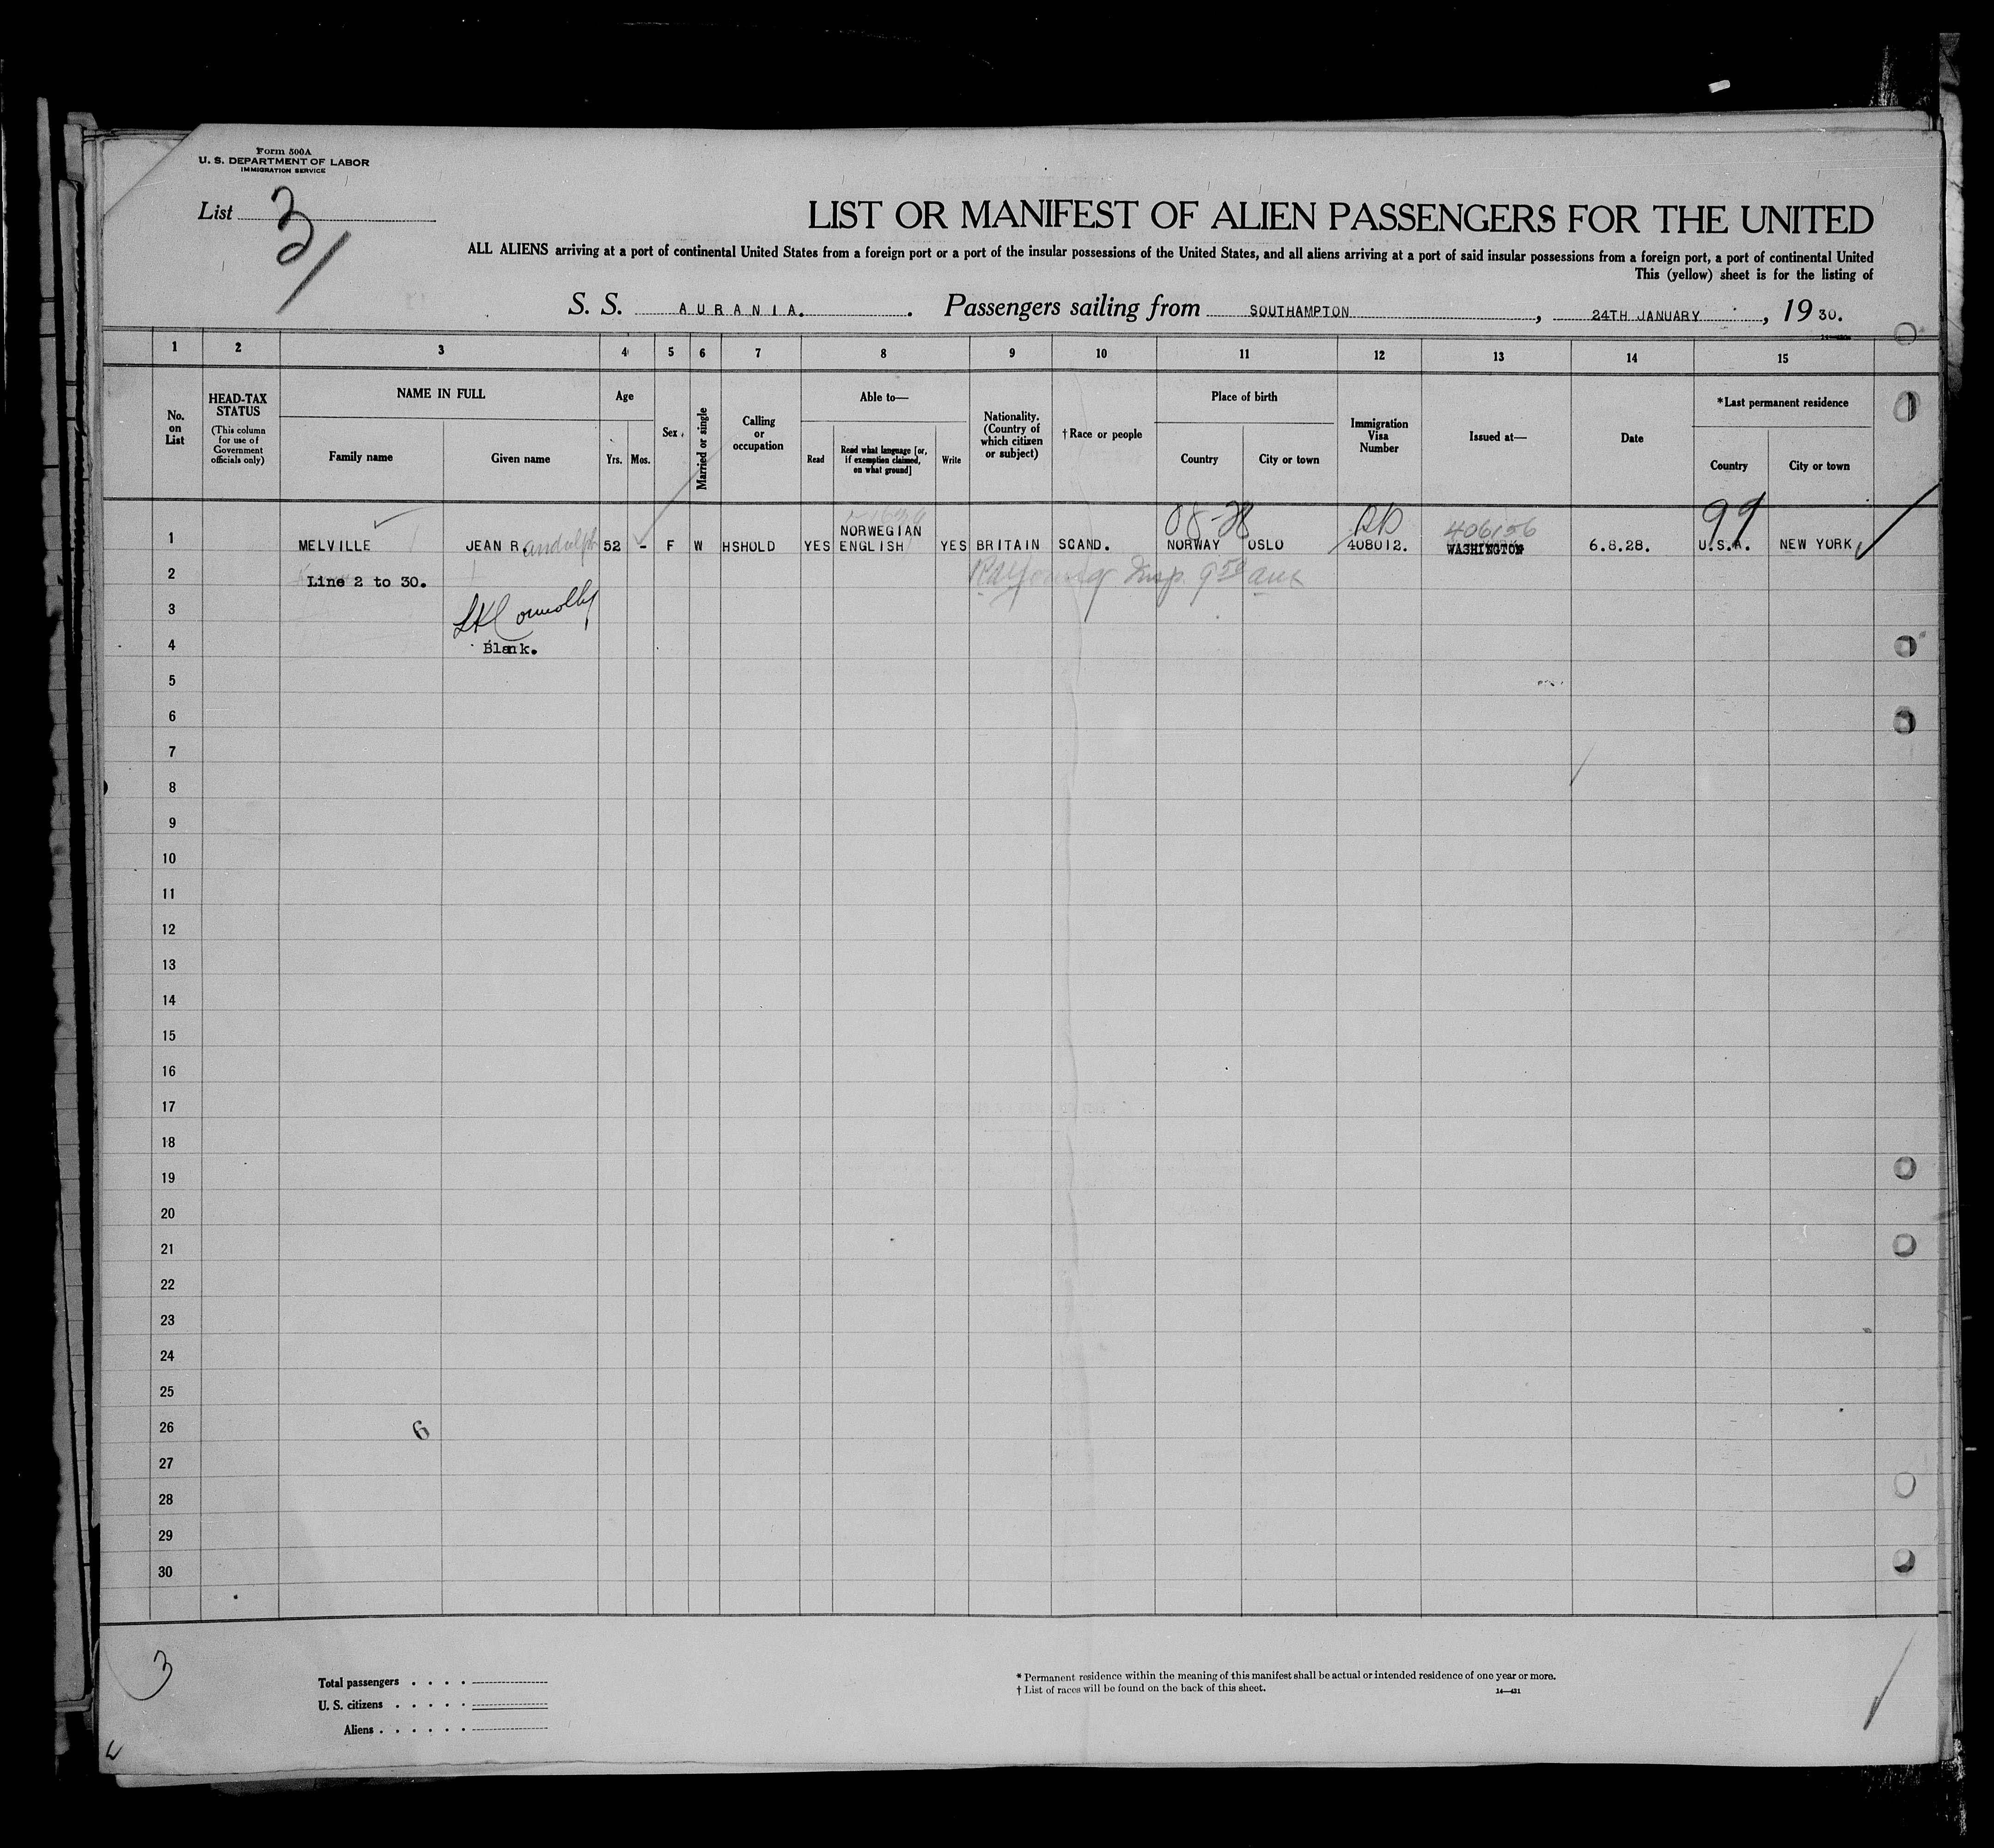 Form 500A
U. S. DEPARTMENT OF LABOR
IMMIGRATION SERVICE
List 3
LIST OR MANIFEST OF ALIEN PASSENGERS FOR THE UNITED
ALL ALIENS arriving at a port of continental United States from a foreign port or a port of the insular possessions of the United States, and all aliens arriving at a port of said insular possessions from a foreign port, a port of continental United
This (yellow) sheet is for the listing of
S. S. AURANIA. . Passengers sailing from SOUTHAMPTON , 24TH JANUARY , 19 30.
1 2 3 4 5 6 7 8 9 10 11 12 13 14 15
No. on List
HEAD-TAX STATUS
(This column for use of Government officials only)
NAME IN FULL
Family name
Given name
Age
Yrs. Mos.
Sex
Married or single
Calling or occupation
Able to—
Read
Read what language [or, if exemption claimed, on what ground]
Write
Nationality. (Country of which citizen or subject)
† Race or people
Place of birth
Country
City or town
Immigration Visa Number
Issued at—
Date
*Last permanent residence
Country
City or town
99
406156
NORWEGIAN
1 MELVILLE JEAN Randolph 52 - F W HSHOLD YES ENGLISH YES BRITAIN SCAND. NORWAY OSLO 408012. WASHINGTON 6.8.28. U.S.A. NEW YORK
2 Line 2 to 30.
3
4 Blank.
5
6
7
8
9
10
11
12
13
14
15
16
17
18
19
20
21
22
23
24
25
26 6
27
28
29
30
3
Total passengers . . . .
U. S. citizens . . . . .
Aliens . . . . . .
* Permanent residence within the meaning of this manifest shall be actual or intended residence of one year or more.
† List of races will be found on the back of this sheet.
14—431